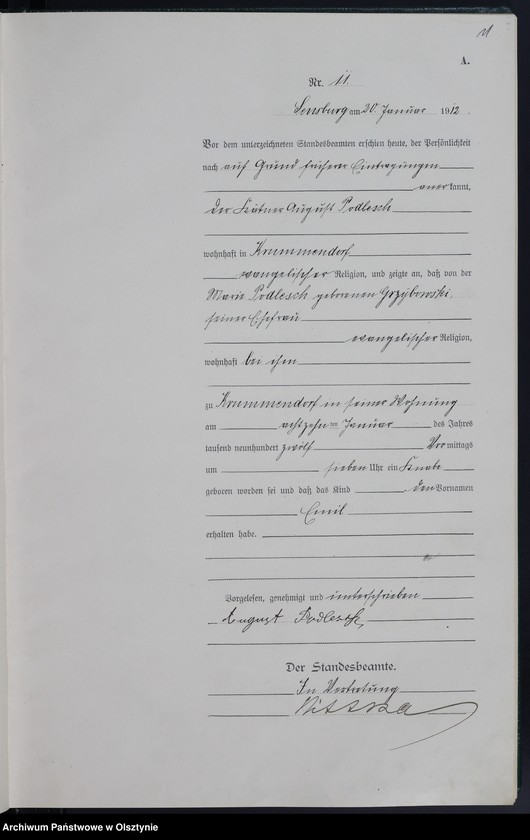 11
A.
Nr. 11.
Sensburg am 20. Januar 1912.
Vor dem unterzeichneten Standesbeamten erschien heute, der Persönlichkeit
nach auf Grund früherer Eintragungen
anerkannt,
der Kätner August Podlesch
wohnhaft in Krummendorf
evangelischer Religion, und zeigte an, daß von der
Marie Podlesch geborenen Grzybowski,
seiner Ehefrau
evangelischer Religion,
wohnhaft bei ihm
zu Krummendorf in seiner Wohnung
am achtzehnten Januar des Jahres
tausend neunhundert zwölf Vormittags
um sieben Uhr ein Knabe
geboren worden sei und daß das Kind den Vornamen
Emil
erhalten habe.
Vorgelesen, genehmigt und unterschrieben
August Podlesch
Der Standesbeamte.
In Vertretung
Archiwum Państwowe w Olsztynie